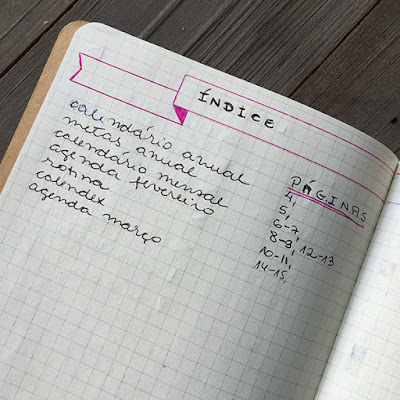 ÍNDICE
calendário anual
metas anual
calendário mensal
agenda fevereiro
rotina
calendex
agenda março
PÁGINAS
4,
5,
6-7,
8-9, 12-13
10-11,
14-15,